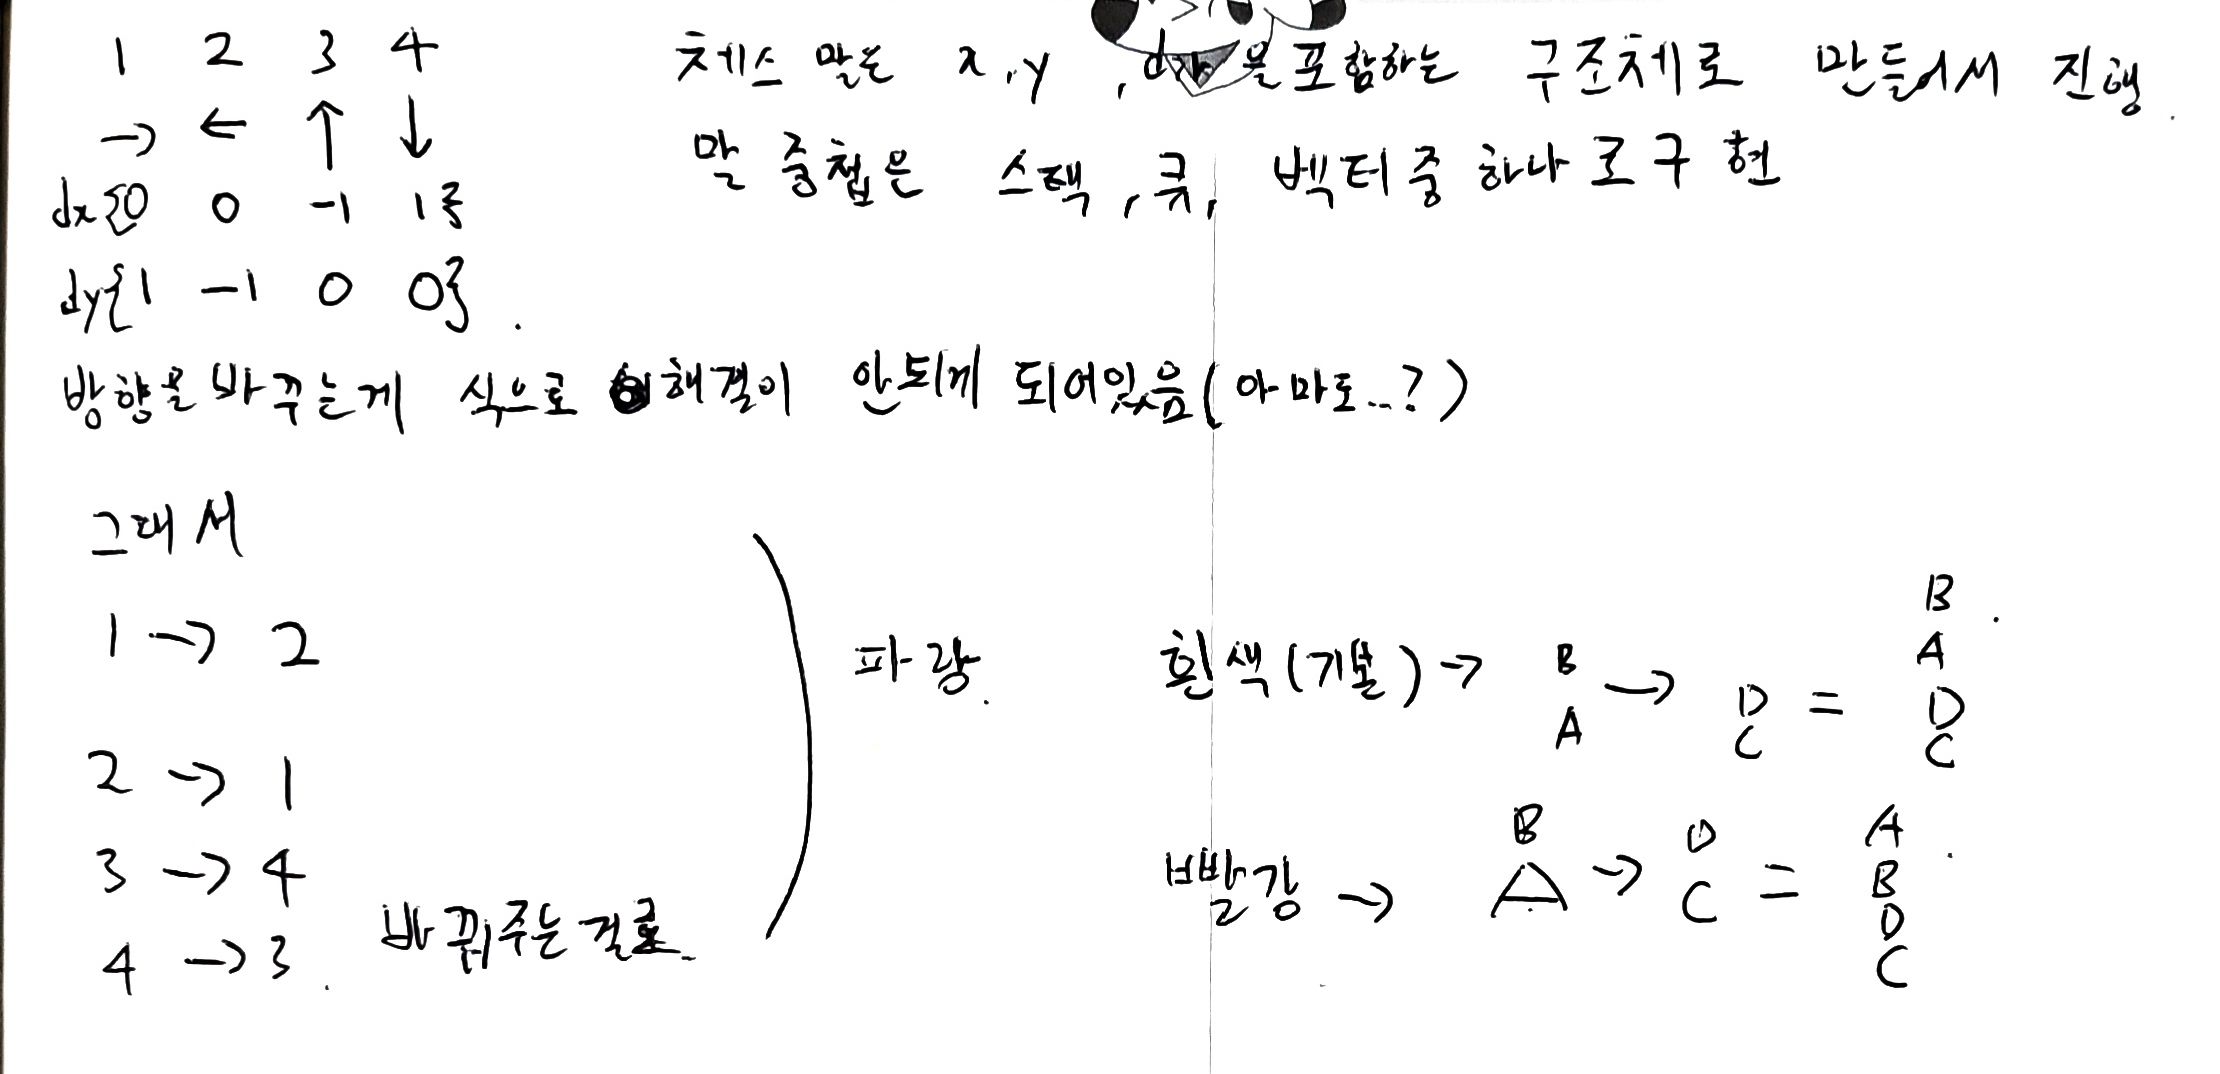 1 2 3 4
→ ← ↑ ↓
dx{0 0 -1 1}
dy{1 -1 0 0}.
체스 말은 x, y, dir을 포함하는 구조체로 만들어서 진행.
말 중첩은 스택, 큐, 벡터 중 하나로 구현
방향을 바꾸는게 식으로 해결이 안되게 되어있음(아마도...?)
그래서
1 → 2
2 → 1
3 → 4
4 → 3. 바꿔주는걸로.
파랑.
흰색(기본) →
B
A
→
D
C
=
B
A
D
C
빨강 →
B
A
→
D
C
=
A
B
D
C